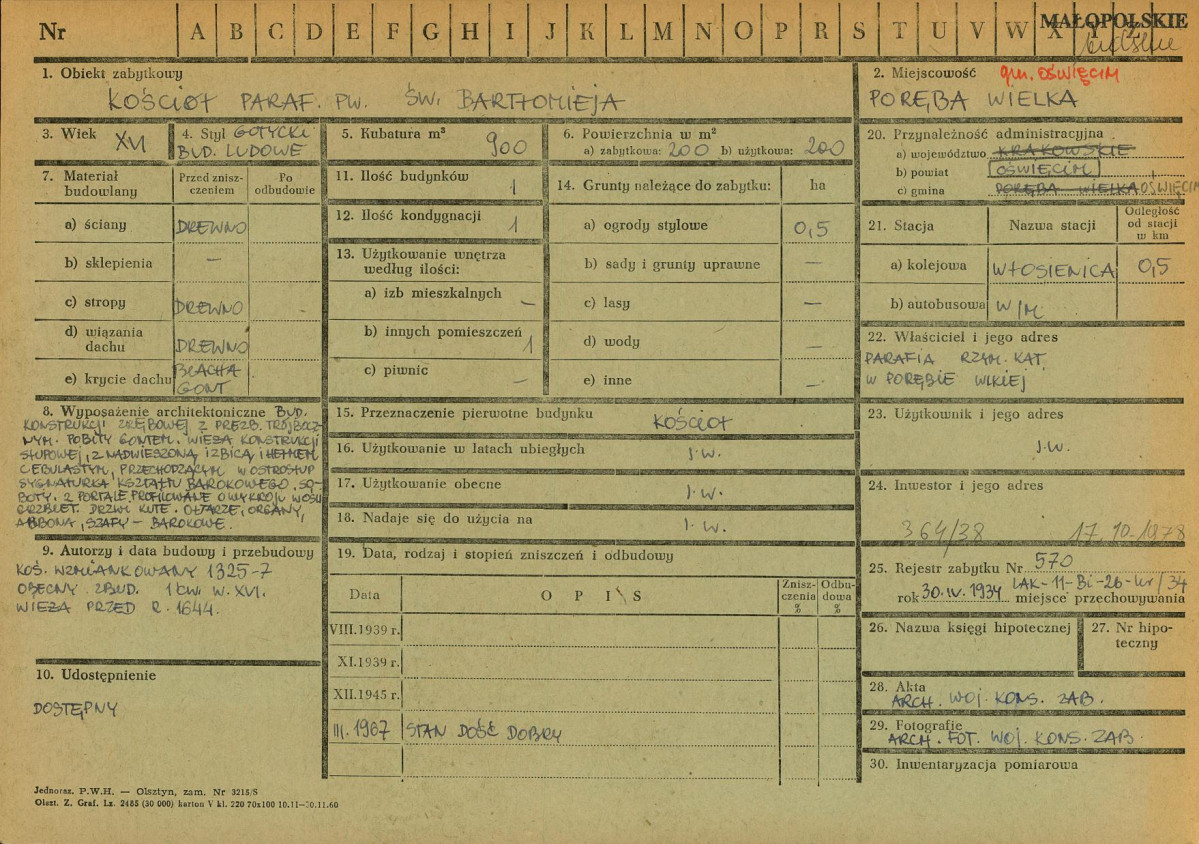 Nr A B C D E F G H I J K L M N O P R S T U V W X Y Z
MAŁOPOLSKIE
1. Obiekt zabytkowy
KOŚCIÓŁ PARAF. PW. ŚW. BARTŁOMIEJA
2. Miejscowość gm. OŚWIĘCIM
PORĘBA WIELKA
3. Wiek XVI
4. Styl GOTYCKI
BUD. LUDOWE
5. Kubatura m³
900
6. Powierzchnia w m²
a) zabytkowa: 200 b) użytkowa: 200
20. Przynależność administracyjna
a) województwo KRAKOWSKIE
b) powiat OŚWIĘCIM
c) gmina PORĘBA WIELKA OŚWIĘCIM
7. Materiał budowlany
Przed znisz-
czeniem
Po
odbudowie
a) ściany DREWNO
b) sklepienia —
c) stropy DREWNO
d) wiązania
dachu DREWNO
e) krycie dachu BLACHA
GONT
11. Ilość budynków 1
12. Ilość kondygnacji 1
13. Użytkowanie wnętrza
według ilości:
a) izb mieszkalnych —
b) innych pomieszczeń 1
c) piwnic —
14. Grunty należące do zabytku: ha
a) ogrody stylowe 0,5
b) sady i grunty uprawne —
c) lasy —
d) wody —
e) inne —
21. Stacja Nazwa stacji
Odległość
od stacji
w km
a) kolejowa WŁOSIENICA 0,5
b) autobusowa W/M
22. Właściciel i jego adres
PARAFIA RZYM. KAT.
W PORĘBIE WLKIEJ
8. Wyposażenie architektoniczne BUD.
KONSTRUKCJI ZRĘBOWEJ Z PREZB. TRÓJBOCZ
NYM. POBITY GONTEM. WIEŻA KONSTRUKCJI
SŁUPOWEJ, Z NADWIESZONĄ IZBICĄ I HEŁMEM
CEBULASTYM, PRZECHODZĄCYM W OSTROSŁUP
SYGNATURKA KSZTAŁTU BAROKOWEGO. SO-
BOTY. 2 PORTALE PROFILOWANE O WYKROJU W OŚLI
GRZBIET. DRZWI KUTE. OŁTARZE, ORGANY,
AMBONA, SZAFY – BAROKOWE.
15. Przeznaczenie pierwotne budynku KOŚCIÓŁ
16. Użytkowanie w latach ubiegłych J.W.
17. Użytkowanie obecne J.W.
18. Nadaje się do użycia na J.W.
23. Użytkownik i jego adres
J.W.
24. Inwestor i jego adres
364/38 17.10.1978
9. Autorzy i data budowy i przebudowy
KOŚ. WZMIANKOWANY 1325-7
OBECNY ZBUD. 1 ĆW. W. XVI.
WIEŻA PRZED R. 1644.
19. Data, rodzaj i stopień zniszczeń i odbudowy
Data OPIS
Znisz-
czenia
%
Odbu-
dowa
%
VIII.1939 r.
XI.1939 r.
XII.1945 r.
III.1967 STAN DOŚĆ DOBRY
25. Rejestr zabytku Nr 570
LAK-11-Bi-26-Wr/34
rok 30.IV.1934 miejsce przechowywania
26. Nazwa księgi hipotecznej
27. Nr hipo-
teczny
10. Udostępnienie
DOSTĘPNY
28. Akta
ARCH. WOJ. KONS. ZAB.
29. Fotografie
ARCH. FOT. WOJ. KONS. ZAB.
30. Inwentaryzacja pomiarowa
Jednoraz. P.W.H. — Olsztyn, zam. Nr 3215/S
Olszt. Z. Graf. Lz. 2485 (30 000) karton V kl. 220 70x100 10.11—30.11.60